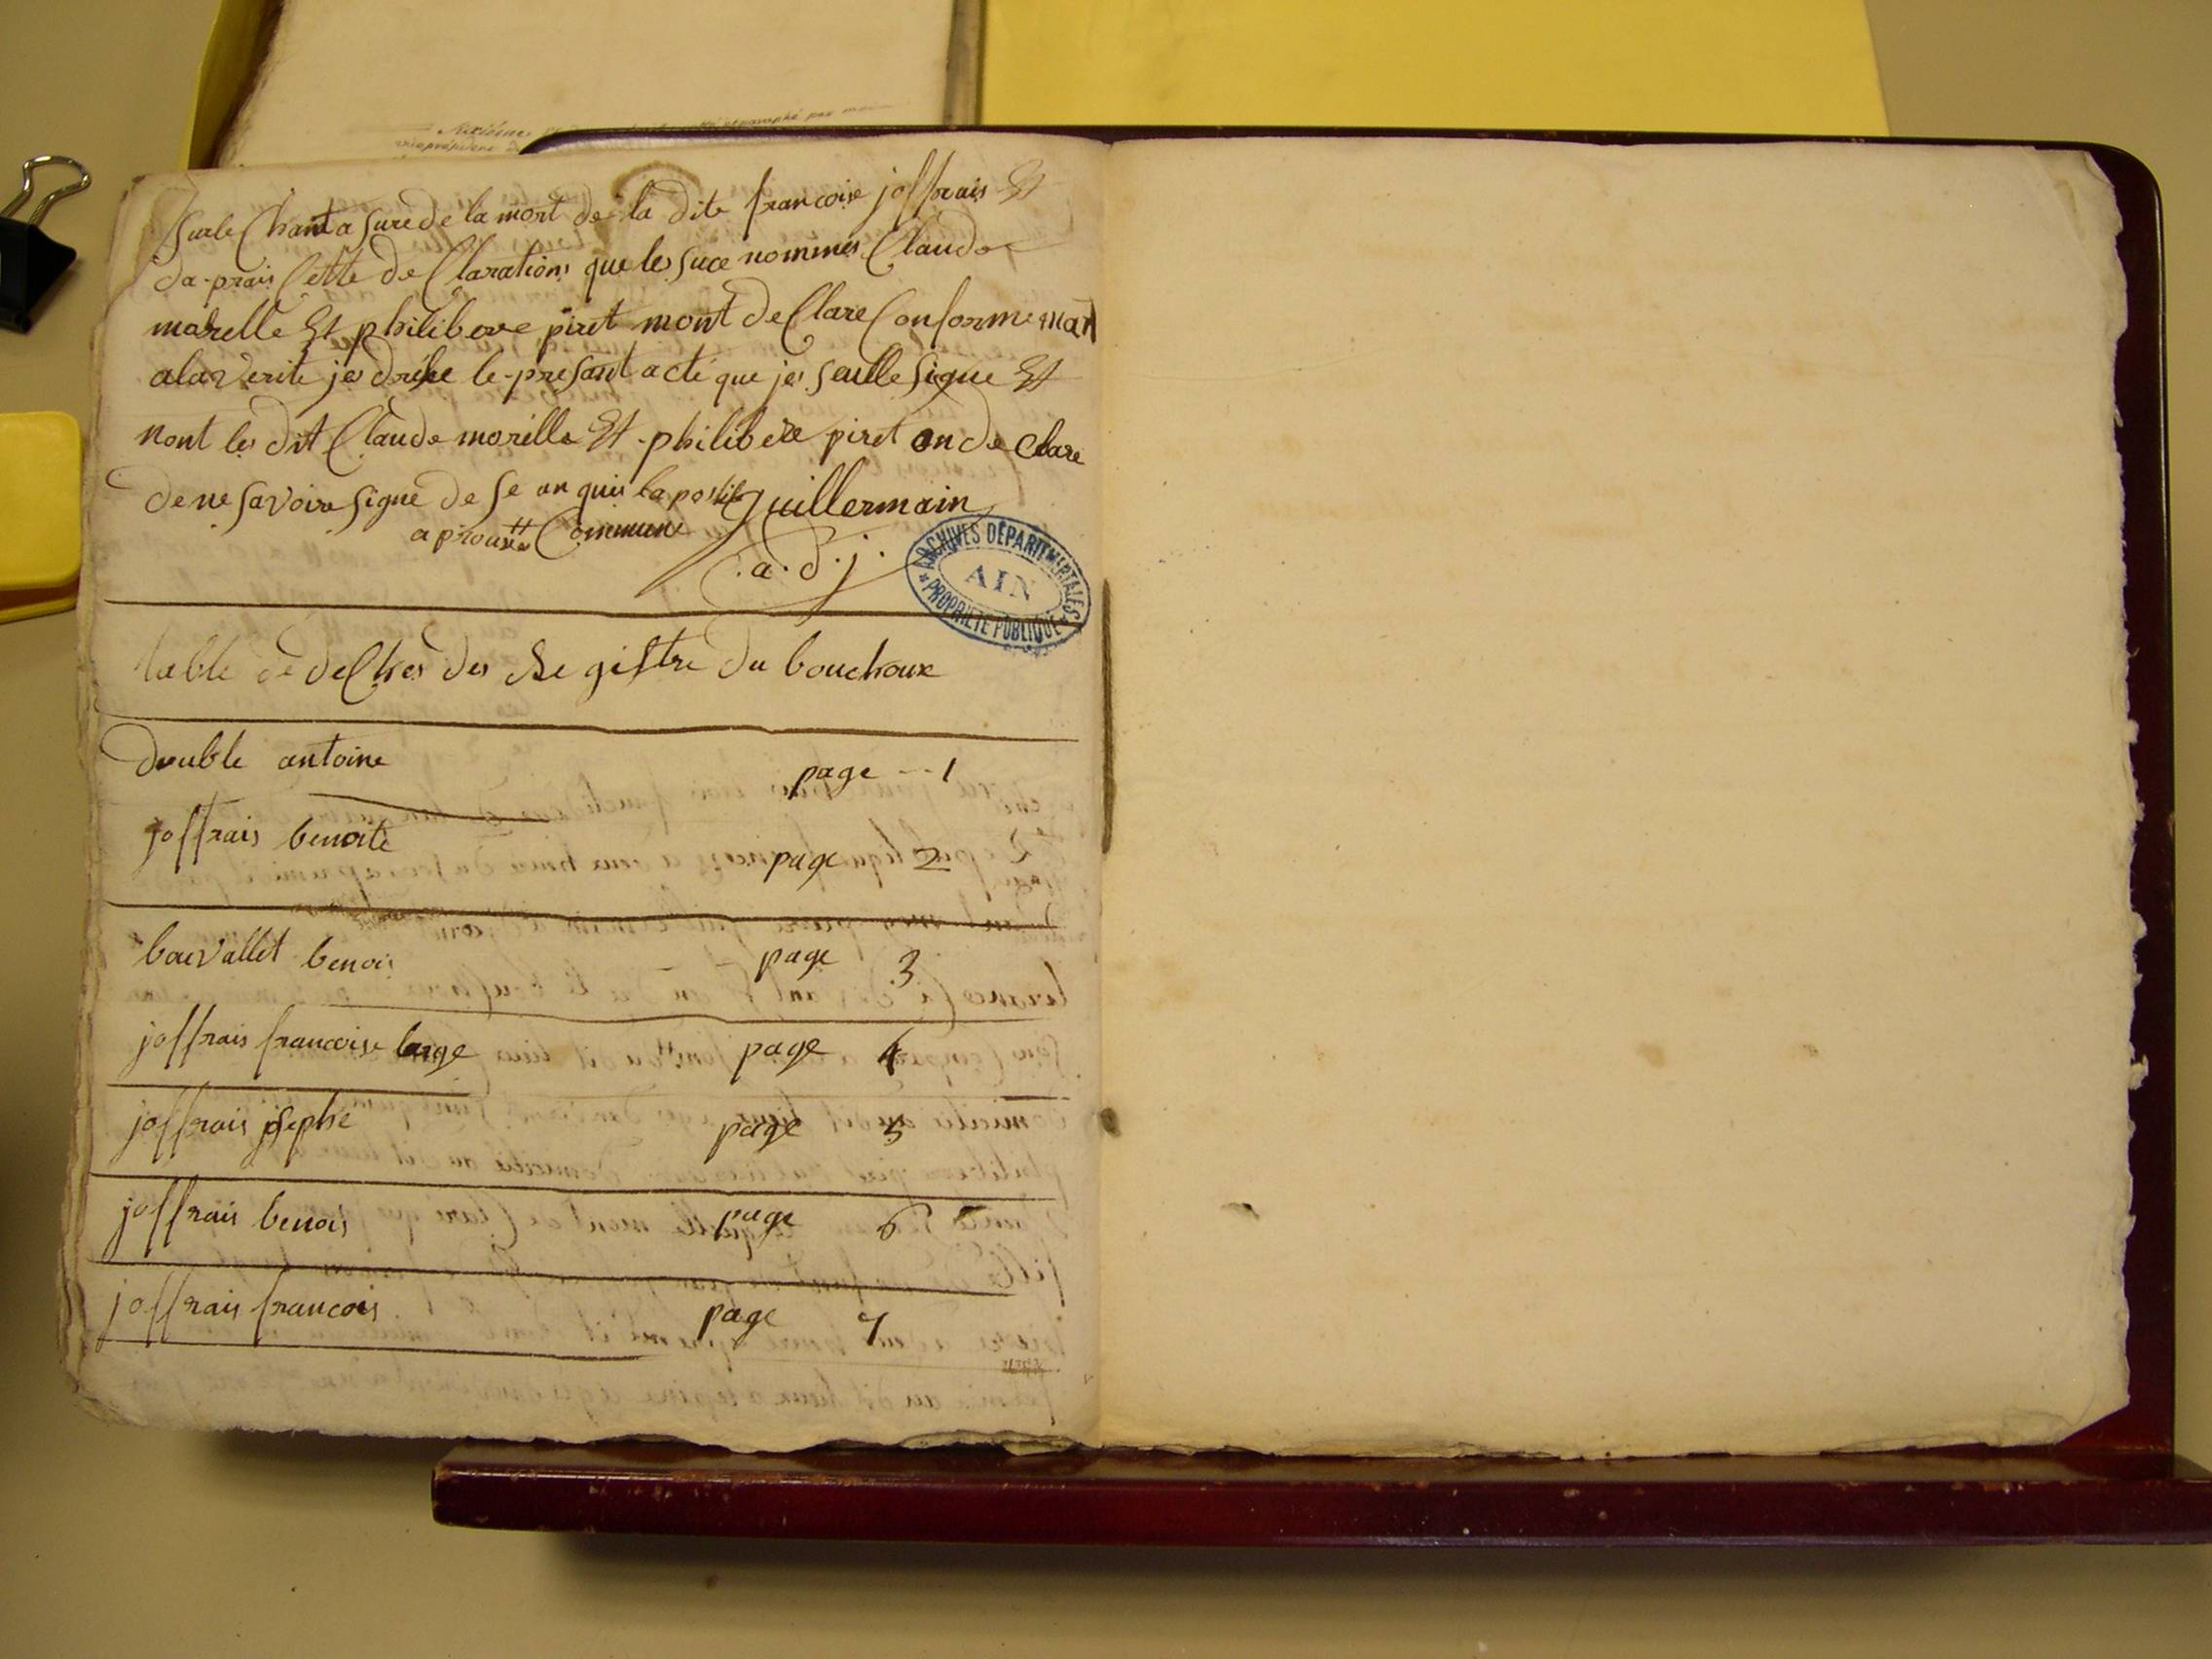 Surle Chant a suré de la mort de la dite francoise joffrais Et
da-prais Cette de Claration que les suce nommés Claude
morelle Et philibere piret mont de Claré Conformemant
ala verite je drésse le-présant acté que je seulle signe Et
nont les dit Claude morille Et -philibere piret on de Clare
de ne savoire signe de se an quis la postile Guillermain
a prouvée Commune
.a.d.j.
ARCHIVES DÉPARTEMENTALES
AIN
PROPRIÉTÉ PUBLIQUE
table de deChes des Re gistre du bouchoux
double antoine page - - 1
joffrais benoite page 2
bouvallet benois page 3
joffrais francoise large page 4
joffrais josephe page 5
joffrais benois page 6
joffrais francois page 7